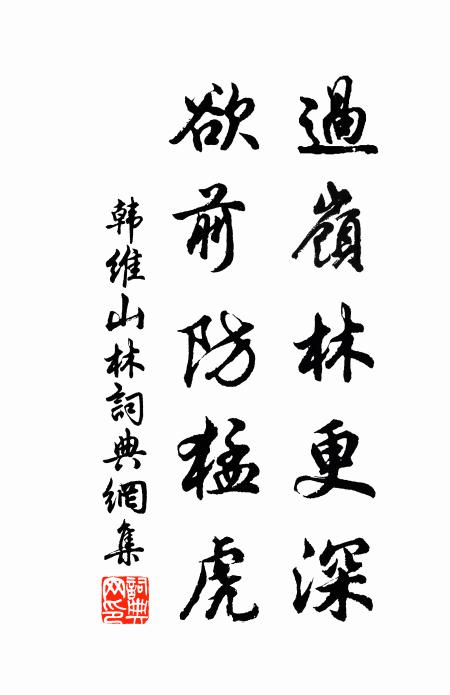 過嶺林更深
欲前防猛虎
韩維山林詞典網集
詞典网印